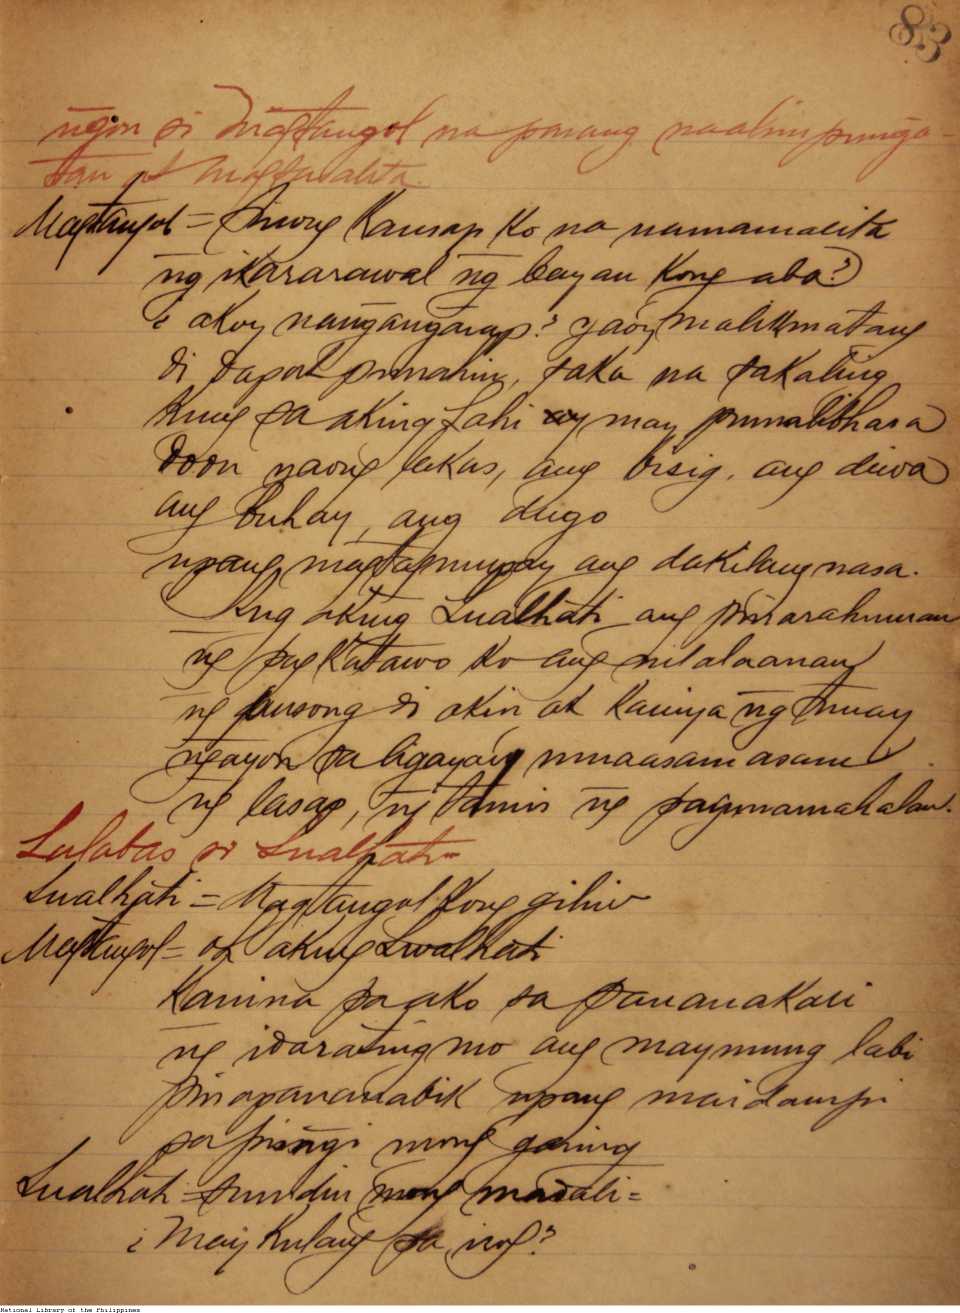 83
ngon si Magtangol na parang naalimpunga-
tan at magsasalita.
Magtangol = Sinong Kausap Ko na namamalita
ng ikararawal ng bayan Kong aba?
¿ akoy nangangarap? yaoy malikmatang
di dapat pansinin, saka na sakaling
Kung sa aking Lahi ay may pumalibhasa
Doon yaong lakas, ang bisig, ang diwa
ang buhay, ang dugo
upang magtagumpay ang dakilang nasa.
Ang aking Lualhati ang
ng pagKatawo Ko ang nilalaanan
ng pusong di akin at Kaniya ng tunay
ngayon sa ligayang inaasamasam
ng lasap, ng tamis ng pagmamahalan.
Lalabas si Lualhati =
Lualhati = Magtangol Kong giliw
Magtangol = oh aking Lwalhati
Kanina pa ako sa pananakali
ng idarating mo ang maymung labi
pinapanabik upang maidampi
sa pisngi mong garing
Lualhati = sundin mong madali =
¿ May Kulang sa irog?
National Library of the Philippines